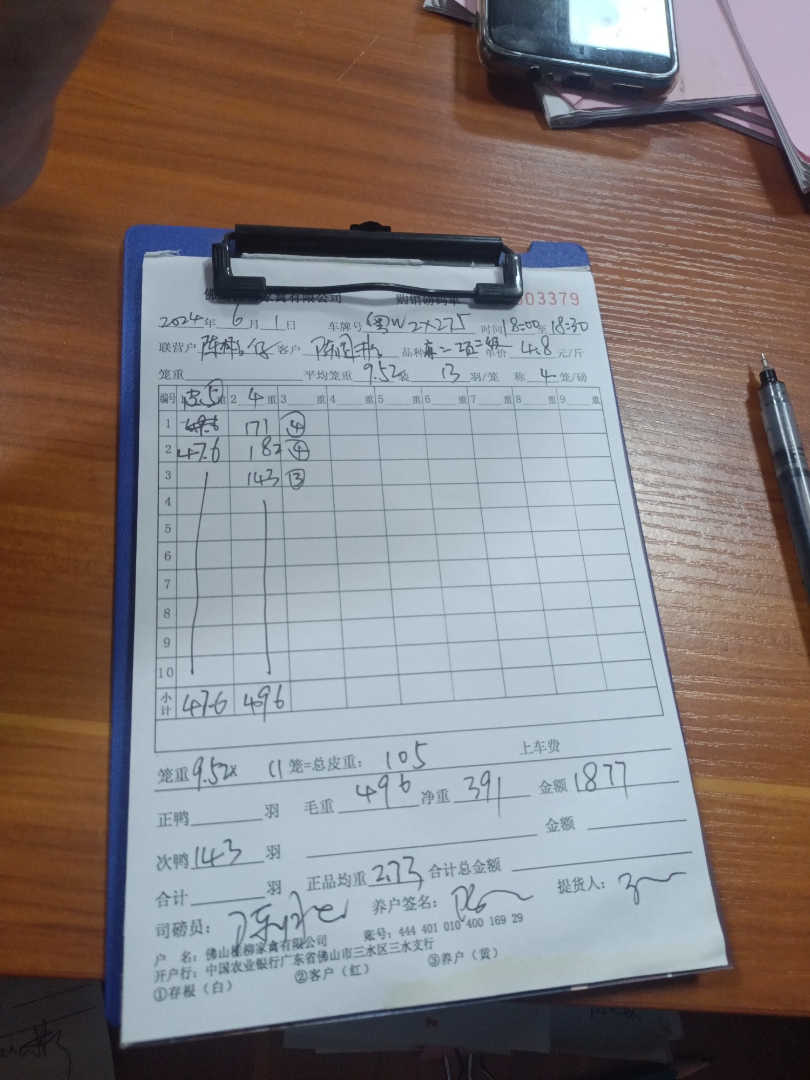 佛山桂柳家禽有限公司 购销磅码单 003379
2024年 6月 1日 车牌号 粤W2X275 时间 18:00至18:30
联营户 客户 品种 单价 4.8 元/斤
笼重 平均笼重 9.52 袋 13 羽/笼 称 4 笼/磅
编号 5 重 2 4 重 3 重 4 重 5 重 6 重 7 重 8 重 9 重
1 171 ④
2 47.6 182 ④
3 143 ③
4
5
6
7
8
9
10
小计 47.6 496
笼重 9.52× 11 笼=总皮重: 105 上车费
正鸭 羽 毛重 496 净重 391 金额 1877
次鸭 143 羽 金额
合计 羽 正品均重 2.73 合计总金额
司磅员: 养户签名: 提货人:
户 名: 佛山桂柳家禽有限公司 账号: 444 401 010 400 169 29
开户行: 中国农业银行广东省佛山市三水区三水支行
①存根（白） ②客户（红） ③养户（黄）